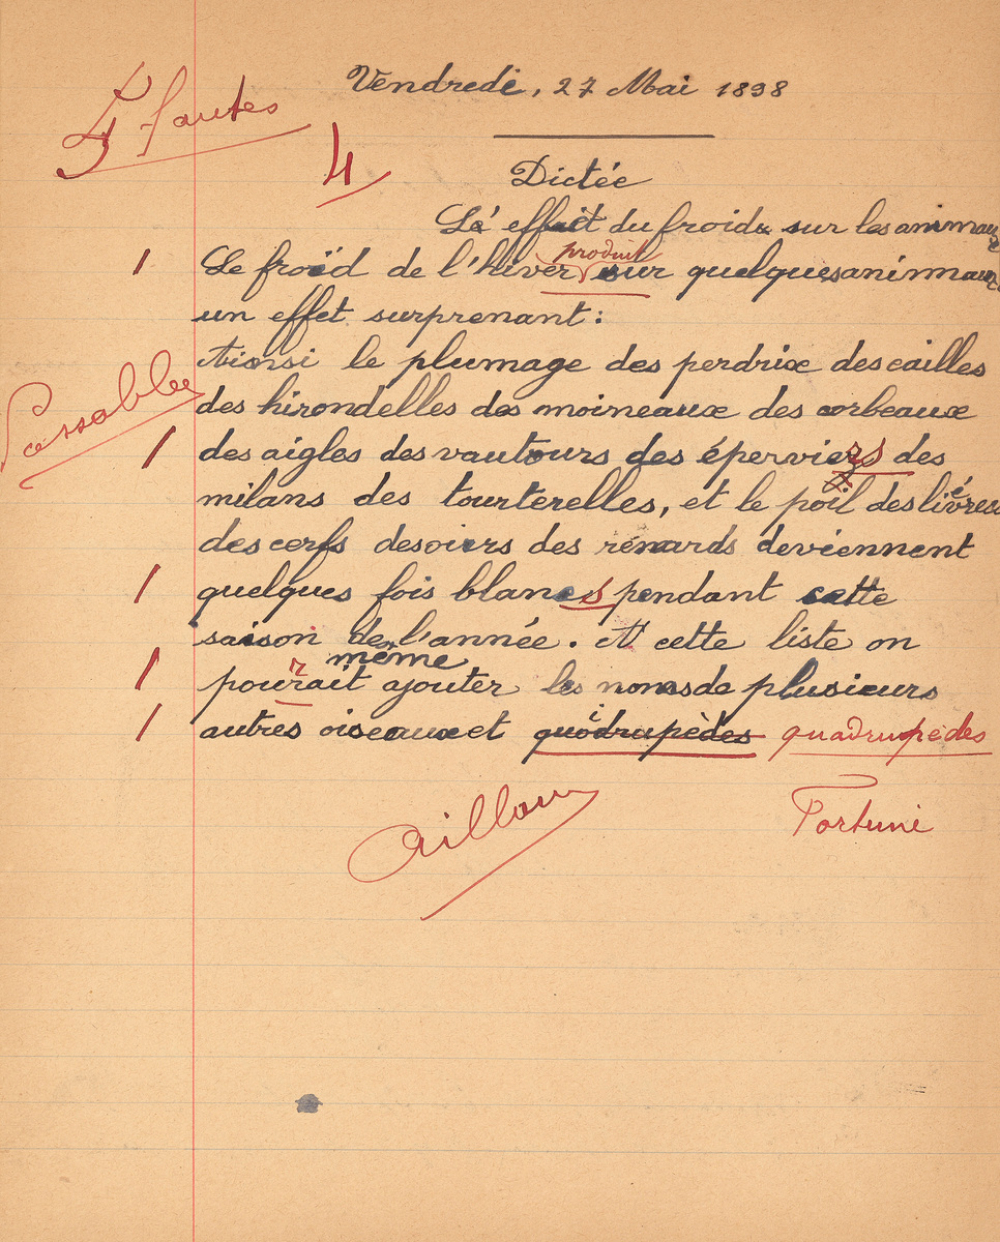 Vendredi, 27 Mai 1898
5 fautes
4
Dictée
Lé effuit du froid sur les animaux
1 Le froid de l'hiver produit sur quelques aninmaux
un effet surprenant :
Ainsi le plumage des perdrix des cailles
Passable
des hirondelles des moineaux des corbeaux
1 des aigles des vautours des éperviers des
milans des tourterelles, et le poil des lièvres
des cerfs des des rénards deviennent
1 quelques fois blancs pendant cette
saison de l'année. A cette liste on
même
1 pourrait ajouter les noms de plusieurs
1 autres oiseaux et quodrupèdes quadrupèdes
Fortuné